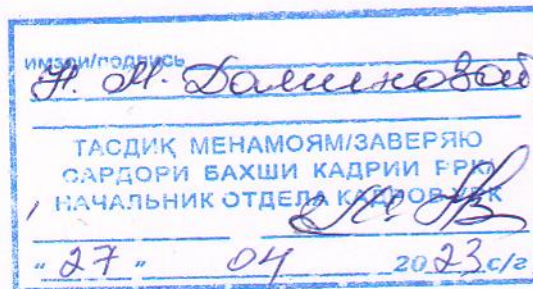 имзои/подпись
Н. М. Доминовой
ТАСДИҚ МЕНАМОЯМ/ЗАВЕРЯЮ
САРДОРИ БАХШИ КАДРИИ
НАЧАЛЬНИК ОТДЕЛА КАДРОВ
" 27 " 04 2023 с/г